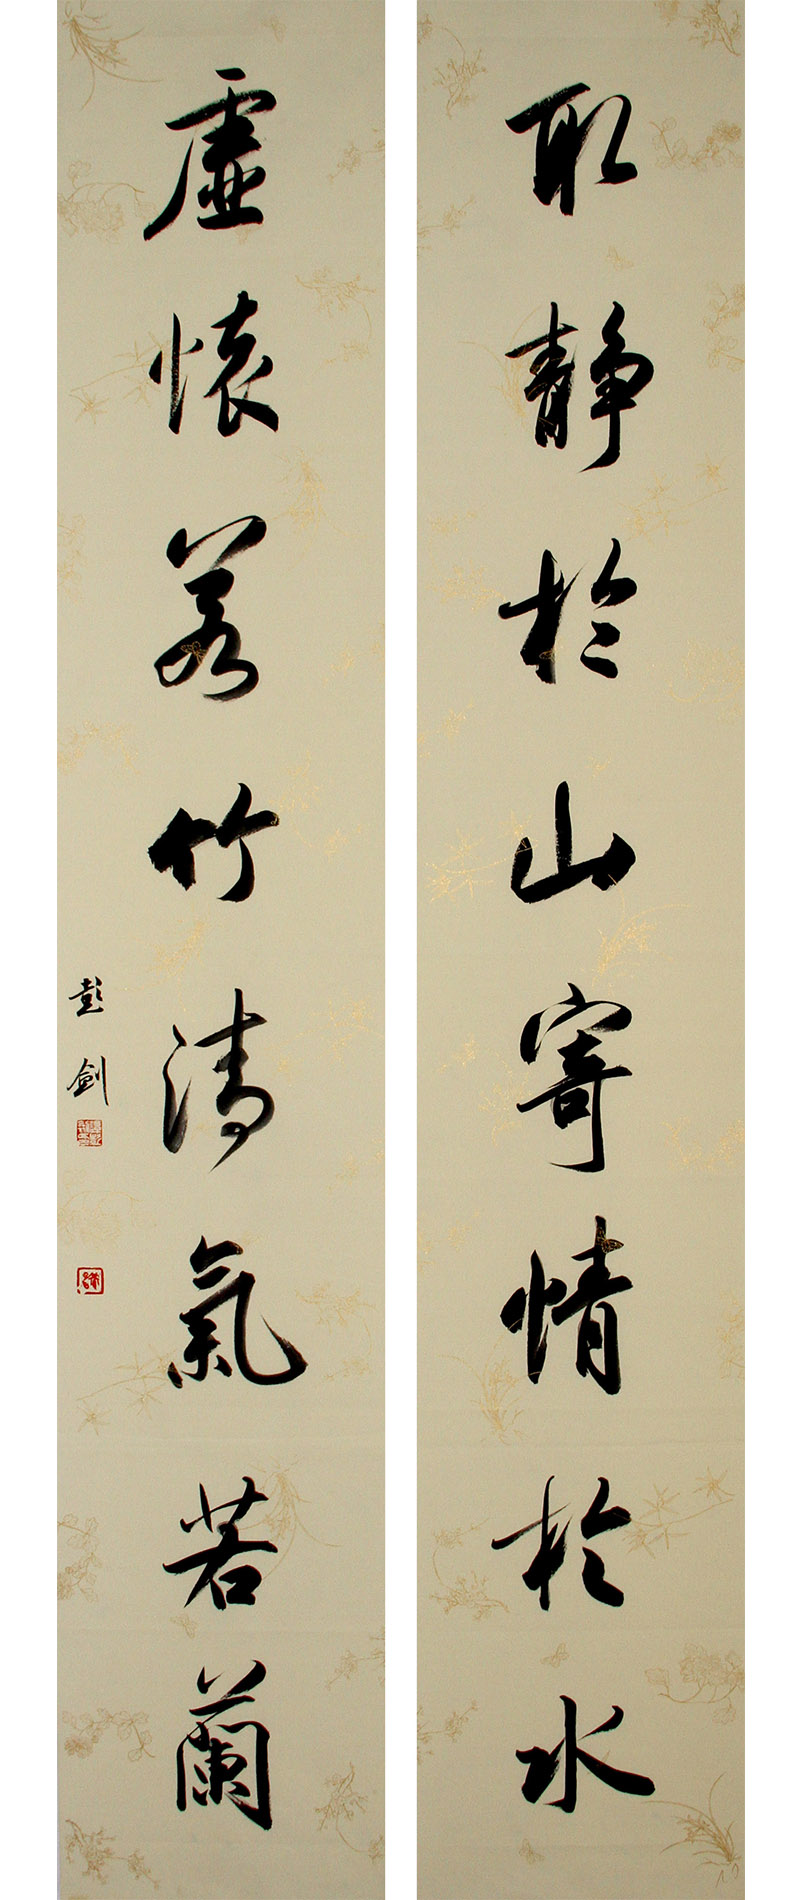 取静於山寄情於水
虚懷若竹清氣若蘭
彭剑